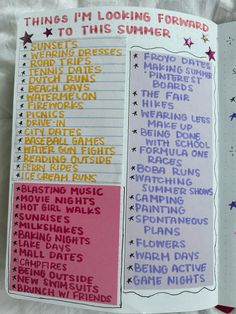 THINGS I'M LOOKING FORWARD
TO THIS SUMMER
SUNSETS
WEARING DRESSES
ROAD TRIPS
TENNIS DATES
DUTCH RUNS
BEACH DAYS
WATERMELON
FIREWORKS
PICNICS
DRIVE-IN
CITY DATES
BASEBALL GAMES
WATER GUN FIGHTS
READING OUTSIDE
FERRY RIDES
ICE CREAM RUNS
BLASTING MUSIC
MOVIE NIGHTS
HOT GIRL WALKS
SUNRISES
MILKSHAKES
BAKING NIGHTS
LAKE DAYS
MALL DATES
CAMPFIRES
BEING OUTSIDE
NEW SWIMSUITS
BRUNCH W/ FRIENDS
FROYO DATES
MAKING SUMMER
PINTEREST
BOARDS
THE FAIR
HIKES
WEARING LESS
MAKE UP
BEING DONE
WITH SCHOOL
FORMULA ONE
RACES
BOBA RUNS
WATCHING
SUMMER SHOWS
CAMPING
PAINTING
SPONTANEOUS
PLANS
FLOWERS
WARM DAYS
BEING ACTIVE
GAME NIGHTS